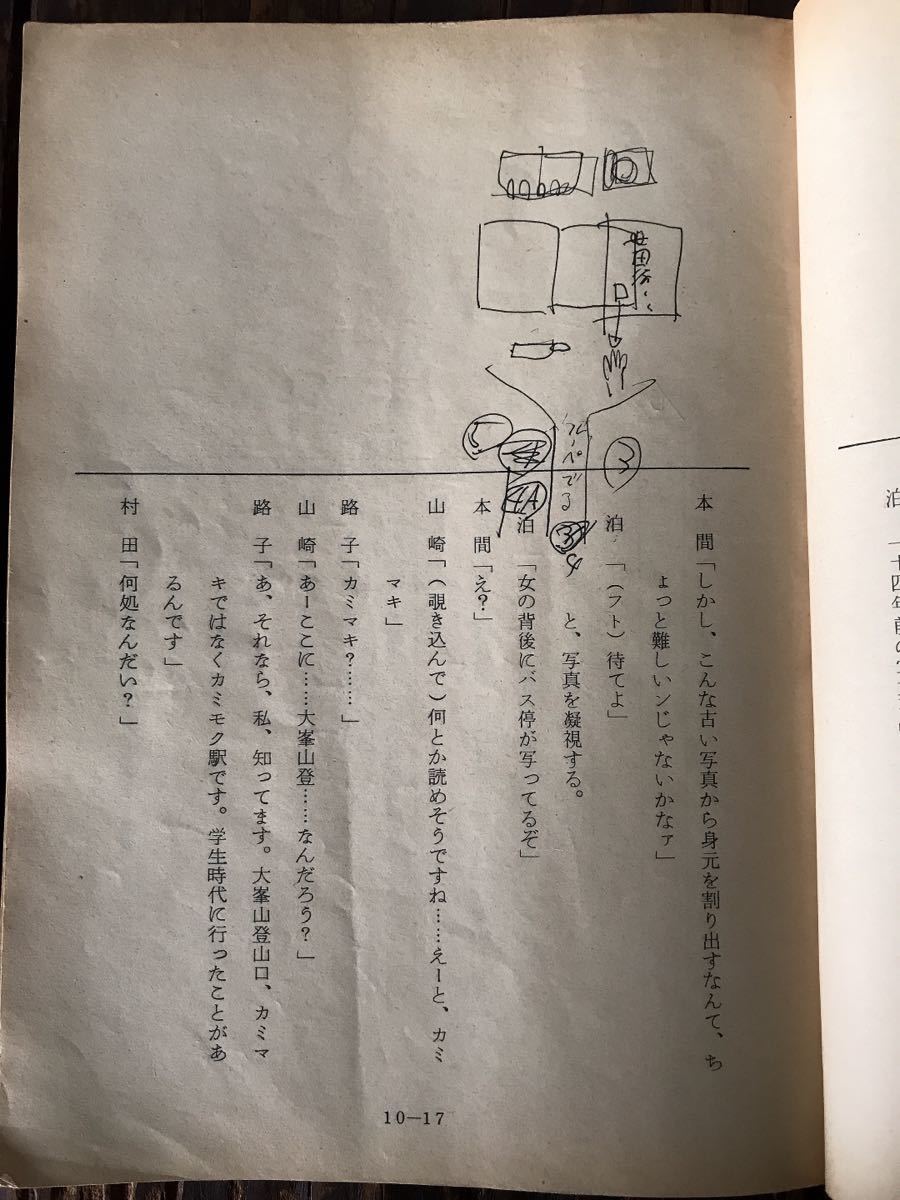 本間「しかし、こんな古い写真から身元を割り出すなんて、ち
ょっと難しいンじゃないかなァ」
泊「（フト）待てよ」
と、写真を凝視する。
泊「女の背後にバス停が写ってるぞ」
本間「え？」
山崎「（覗き込んで）何とか読めそうですね……えーと、カミ
マキ」
路子「カミマキ？……」
山崎「あーここに……大峯山登……なんだろう？」
路子「あ、それなら、私、知ってます。大峯山登山口、カミマ
キではなくカミモク駅です。学生時代に行ったことがあ
るんです」
村田「何処なんだい？」
10—17
3
ルーペでる
4A
5
泊